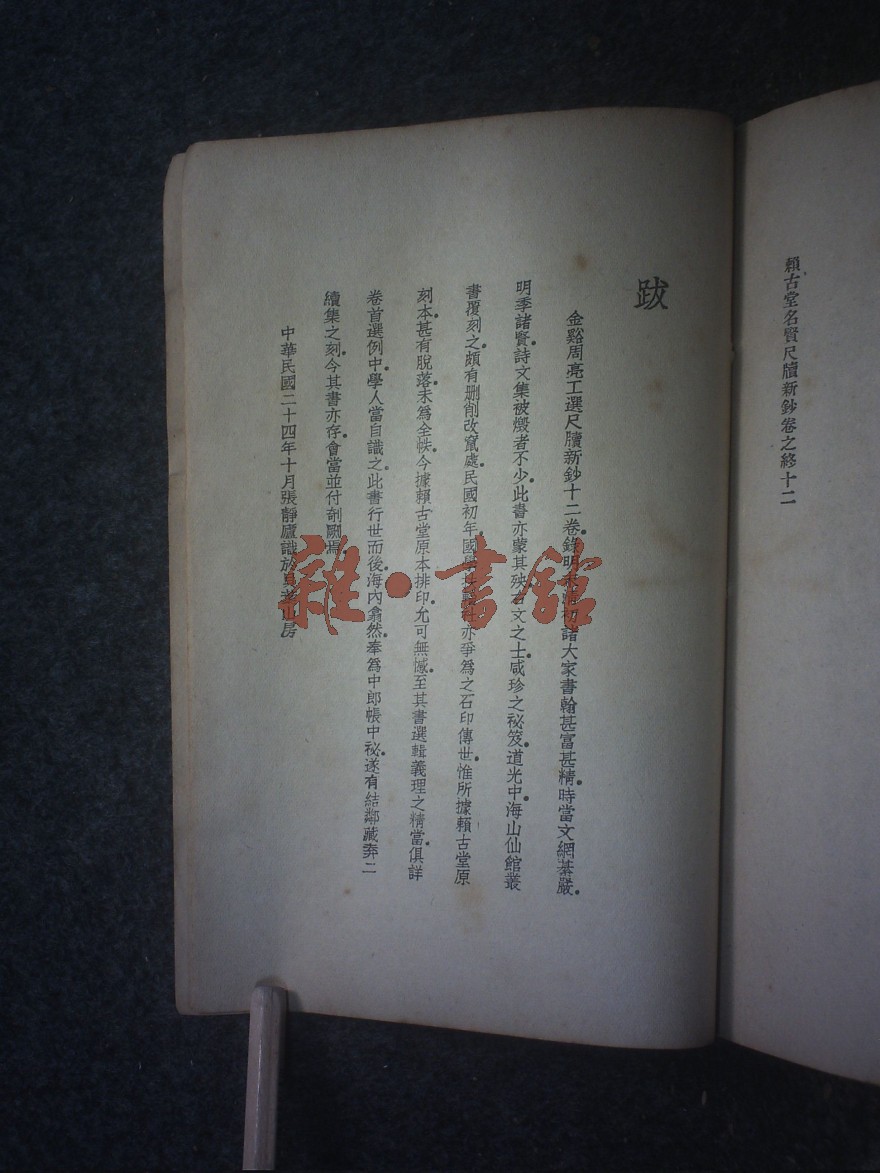 賴古堂名賢尺牘新鈔卷之終十二
跋
金谿周亮工選尺牘新鈔十二卷錄明末清初諸大家書翰甚富甚精時當文網綦嚴
明季諸賢詩文集被燬者不少此書亦蒙其殃右文之士咸珍之祕笈道光中海山仙館叢
書覆刻之頗有删削改竄處民國初年國學社亦爭爲之石印傳世惟所據賴古堂原
刻本甚有脫落未爲全帙今據賴古堂原本排印允可無憾至其書選輯義理之精當俱詳
卷首選例中學人當自識之此書行世而後海內翕然奉爲中郎帳中祕遂有結鄰藏弆二
續集之刻今其書亦存會當並付剞劂焉
中華民國二十四年十月張靜廬識於山房
雜·書館